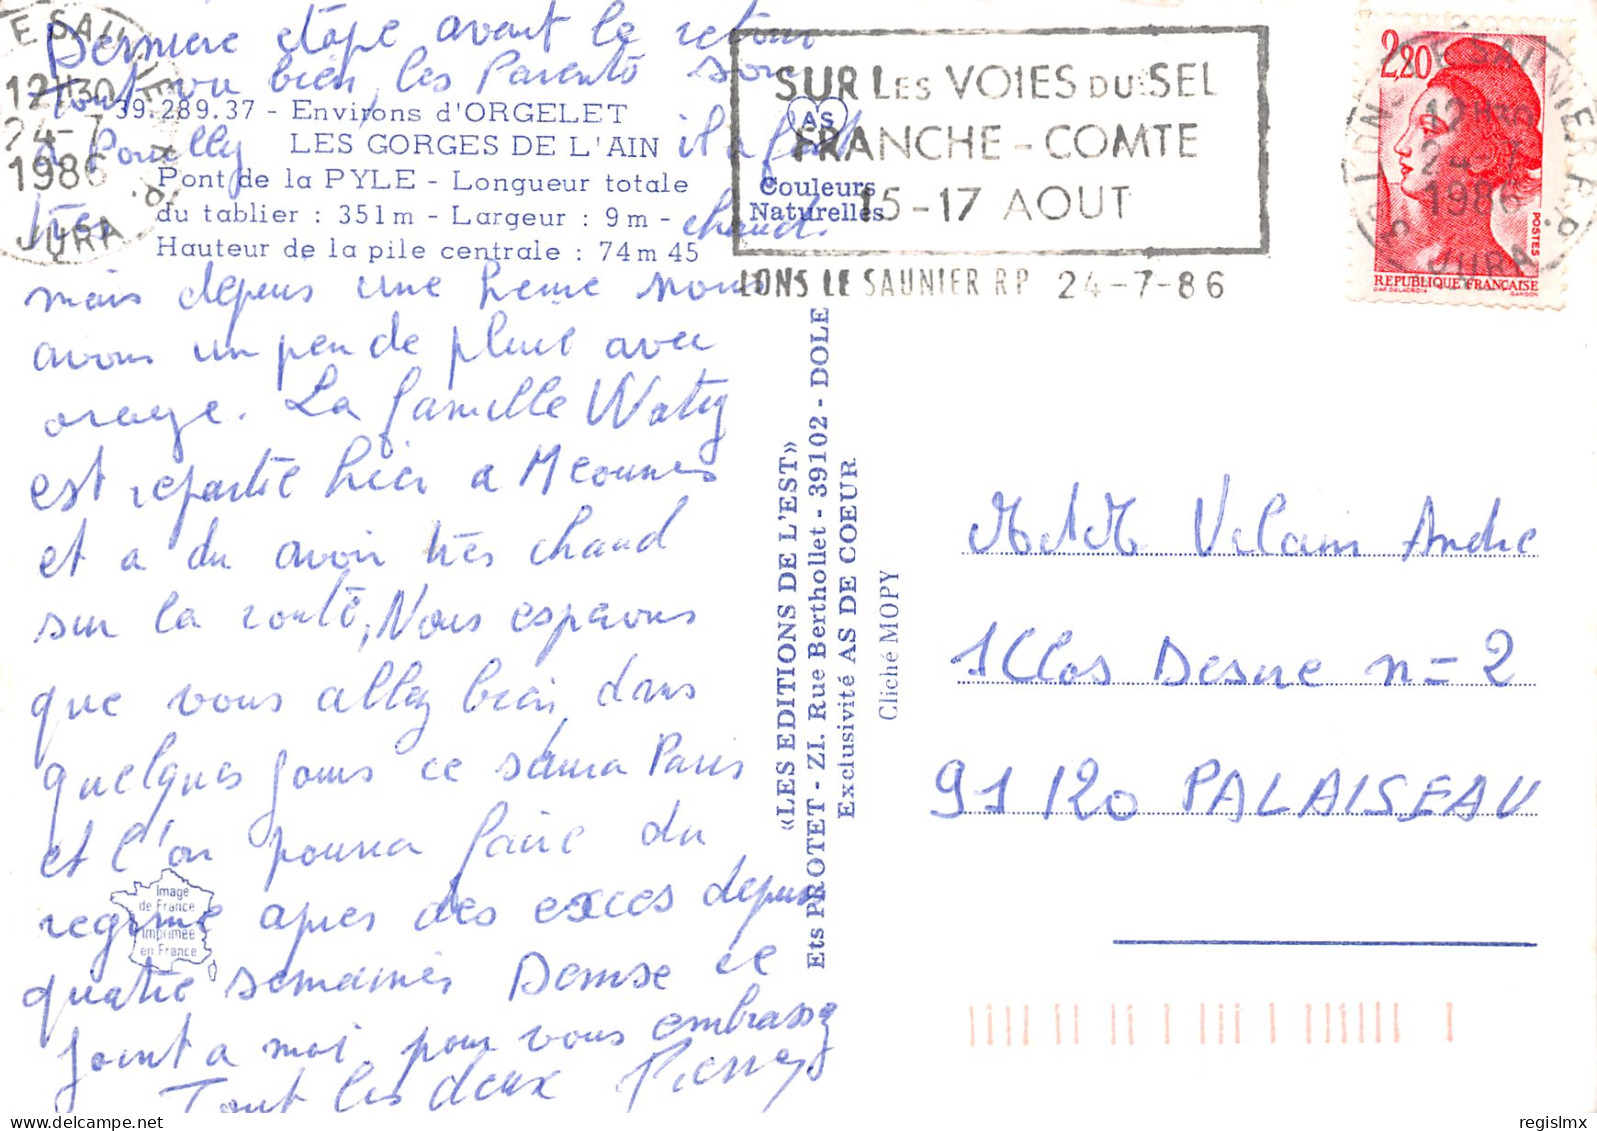 Derniere étape avant le retour
Tout va bien, les Parents son
à Poncelly il a fait
très chaud.
mais depuis une heure nous
avons un peu de pluie avec
orage. La famille Watez
est repartie hier a Meounes
et a du avoir très chaud
sur la route, Nous esperons
que vous allez bien, dans
quelques jours ce sera Paris
et l'on pourra faire du
regime apres des exces depuis
quatre semaines Denise se
joint a moi pour vous embrasser
Tout les deux Pierre
39.289.37 - Environs d'ORGELET
LES GORGES DE L'AIN
Pont de la PYLE - Longueur totale
du tablier : 351 m - Largeur : 9 m -
Hauteur de la pile centrale : 74 m 45
AS
Couleurs
Naturelles
12H30
24-7
1986
JURA
SUR LES VOIES DU SEL
FRANCHE - COMTE
15-17 AOUT
LONS LE SAUNIER RP 24-7-86
2,20
POSTES
REPUBLIQUE FRANÇAISE
DAP. DELACROIX GANDON
LONS LE SAUNIER R.P.
12H30
24-7
1986
JURA
«LES EDITIONS DE L'EST»
Ets PROTET - ZI. Rue Berthollet - 39102 - DOLE
Exclusivité AS DE COEUR
Cliché MOPY
Image
de France
Imprimée
en France
M et M Vilain Andre
1 Clos Desne n= 2
91120 PALAISEAU
regislmx
delcampe.net